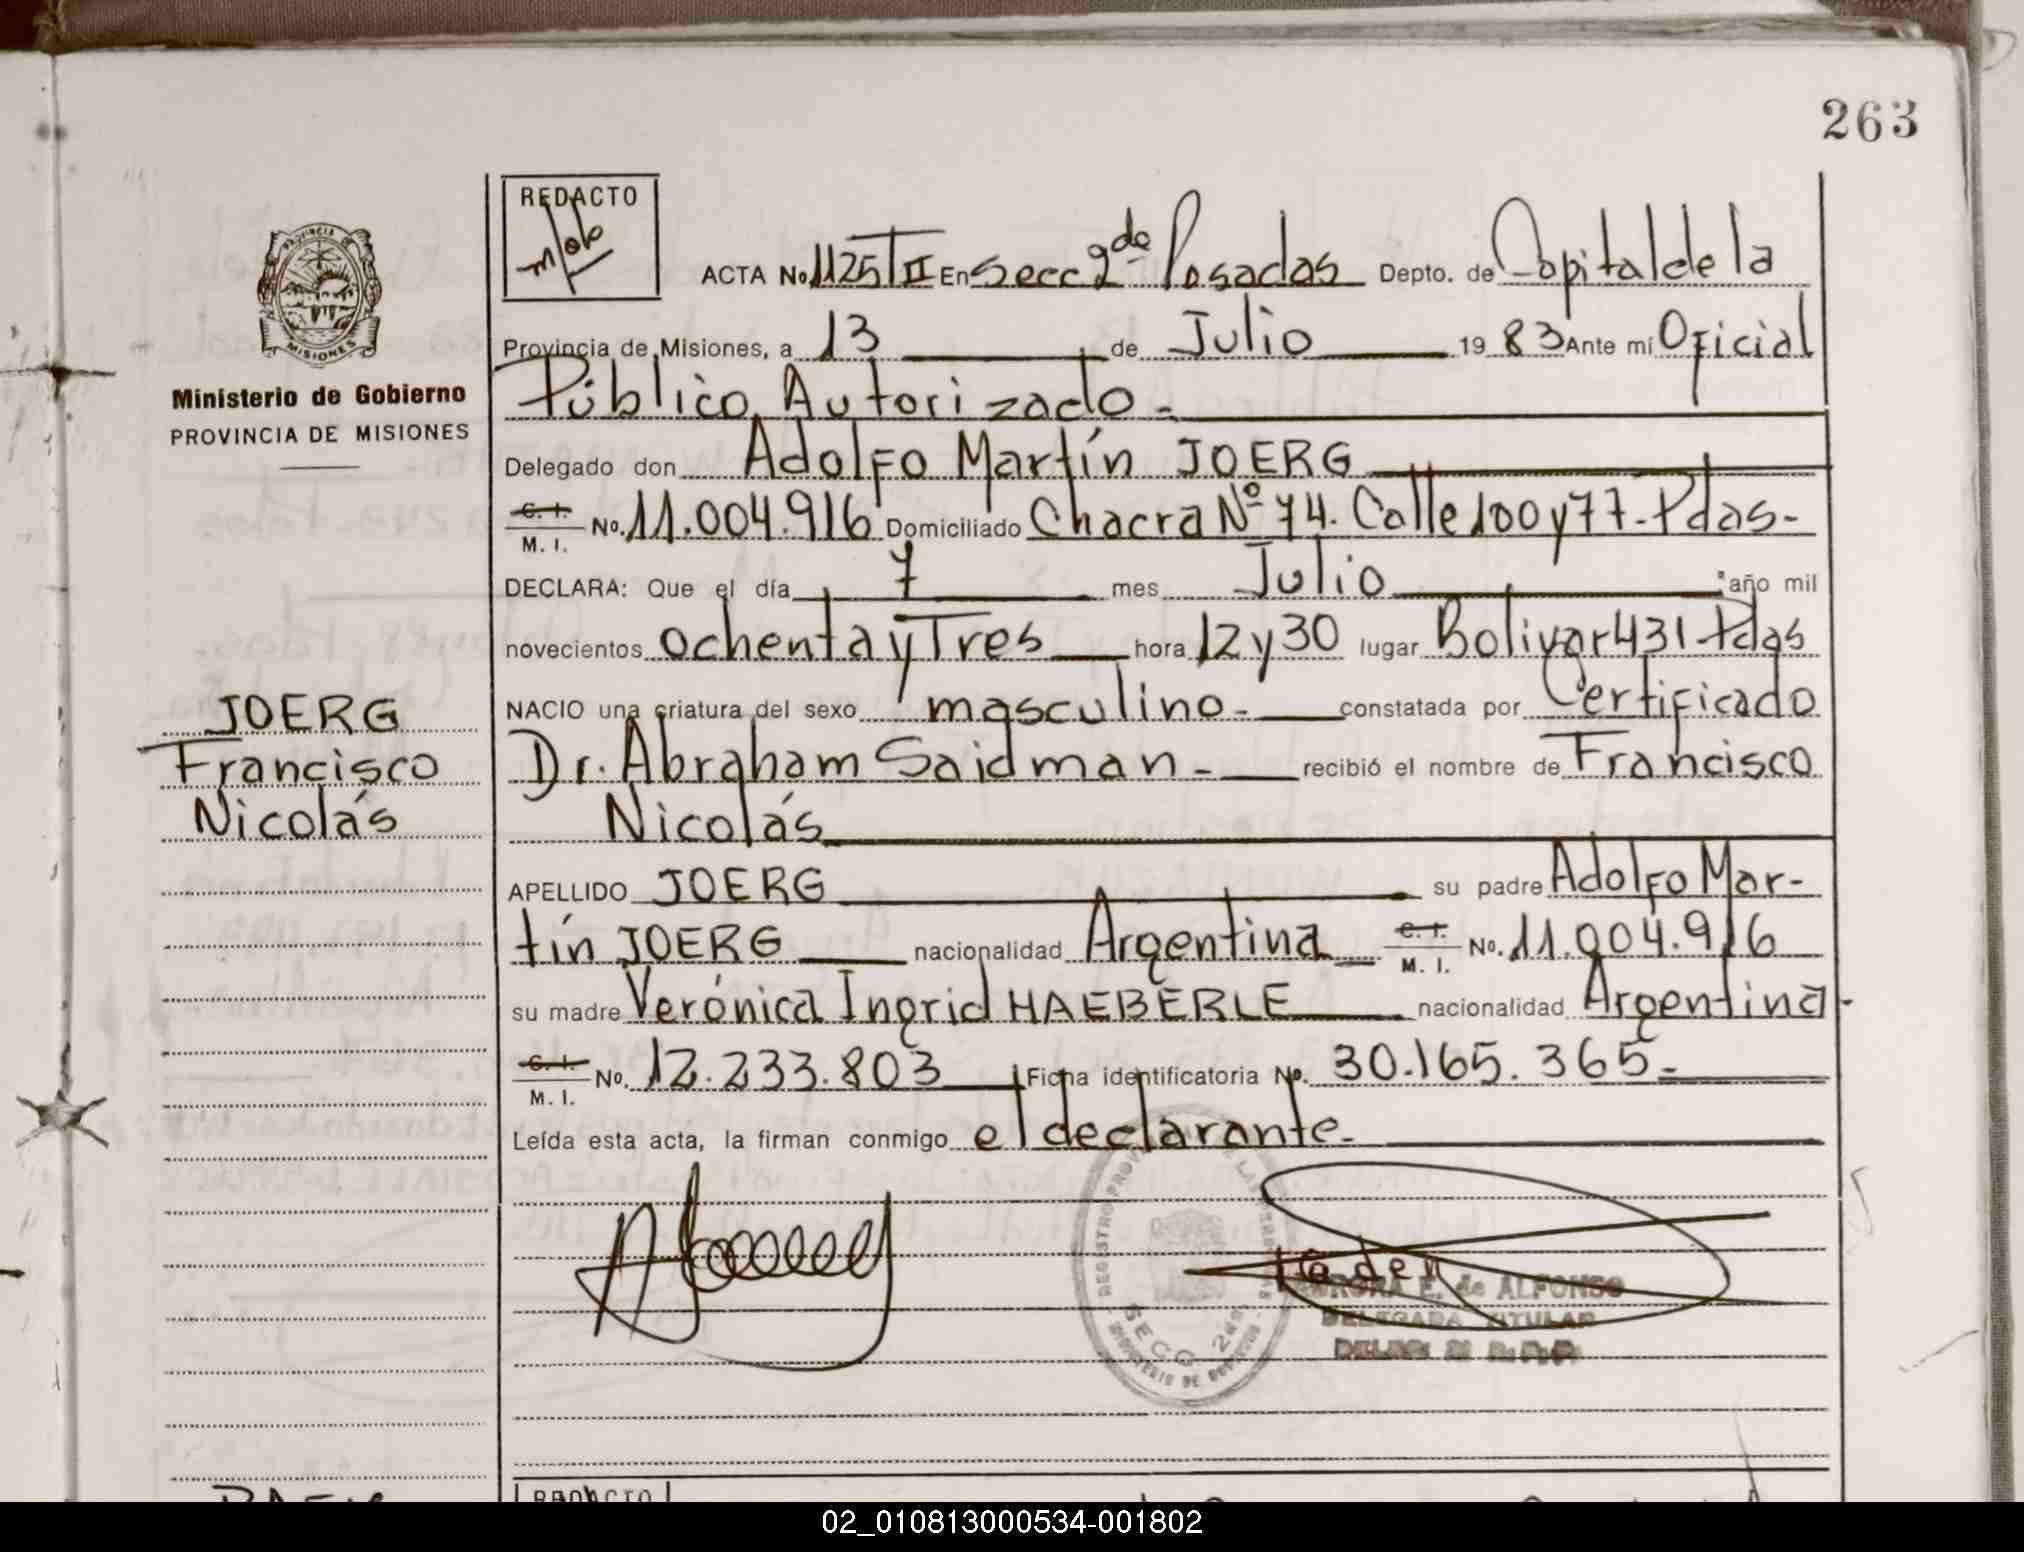 263
REDACTO
ACTA No. 1125 T II En Secc 2da Posadas Depto. de Capital de la
PROVINCIA DE
MISIONES
Provincia de Misiones, a 13 de Julio 1983 Ante mí Oficial
Ministerio de Gobierno
PROVINCIA DE MISIONES
Público Autorizado.-
Delegado don Adolfo Martín JOERG
C. I.
M. I. No. 11.004.916 Domiciliado Chacra Nº 74. Calle 100 y 77-Pdas-
DECLARA: Que el día 7 mes Julio año mil
novecientos ochenta y Tres hora 12 y 30 lugar Bolivar 431-Pdas
JOERG
Francisco
Nicolás
NACIO una criatura del sexo masculino.- constatada por Certificado
Dr. Abraham Saidman.- recibió el nombre de Francisco
Nicolás
APELLIDO JOERG su padre Adolfo Mar-
tín JOERG nacionalidad Argentina C. I.
M. I. No. 11.004.916
su madre Verónica Ingrid HAEBERLE nacionalidad Argentina-
C. I.
M. I. No. 12.233.803 Ficha identificatoria No. 30.165.365-
Leída esta acta, la firman conmigo el declarante.-
SECC 2da
E. de ALFONSO
DELEGADA TITULAR
REDACTO
02_010813000534-001802